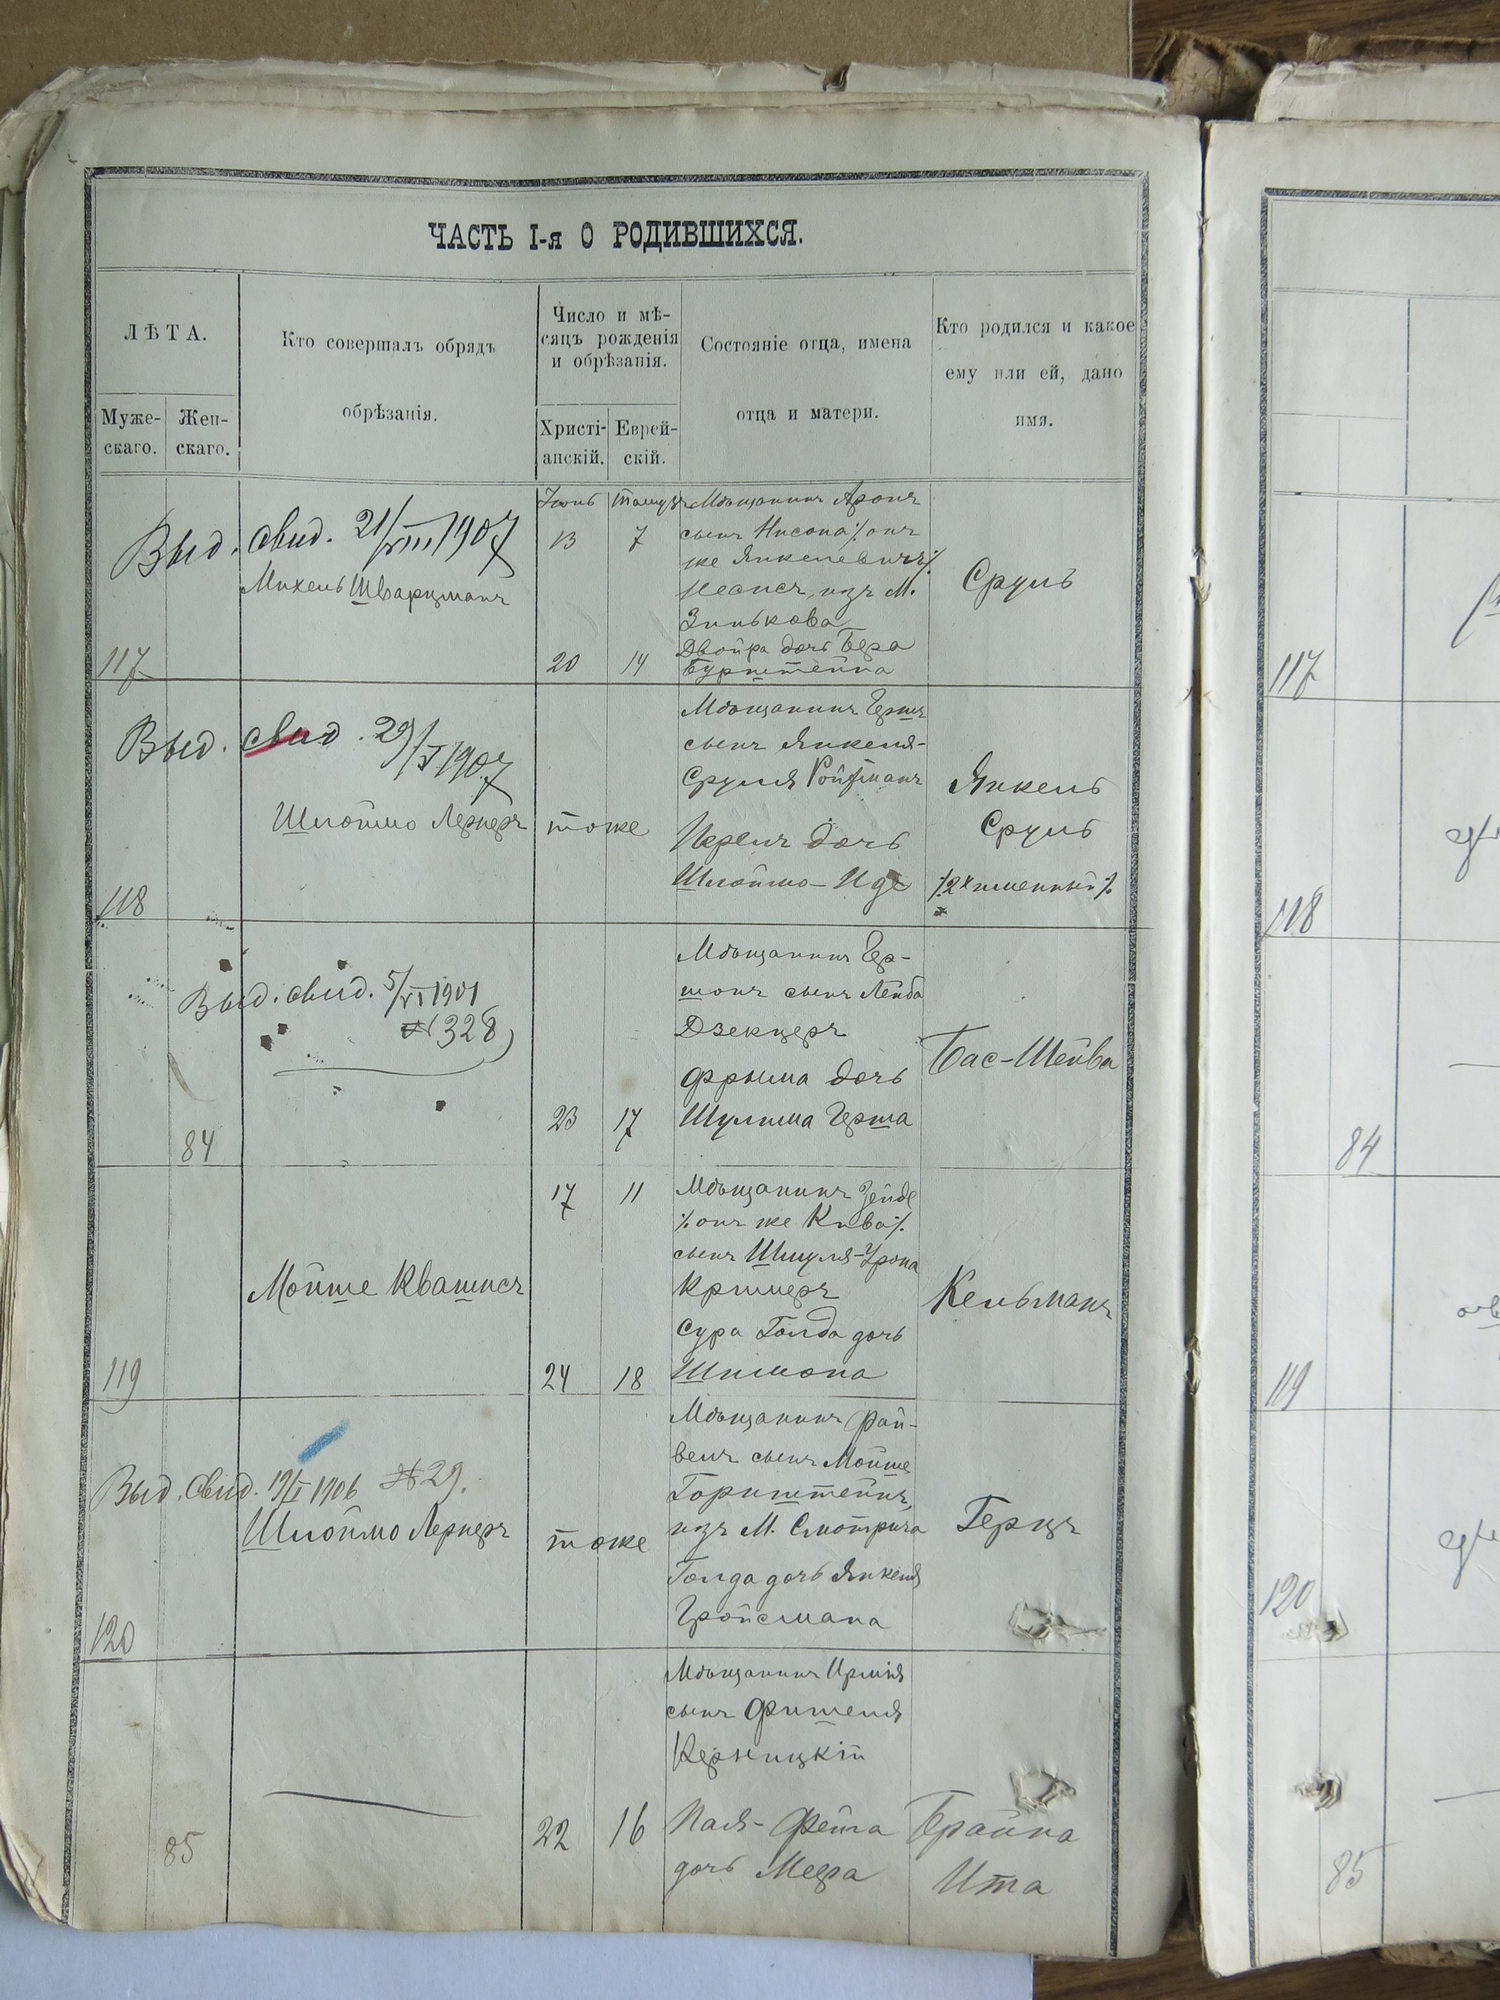 ЧАСТЬ I-я О РОДИВШИХСЯ.
ЛѢТА.
Муже-
скаго.
Жен-
скаго.
Кто совершалъ обрядъ
обрѣзанія.
Число и мѣ-
сяцъ рожденія
и обрѣзанія.
Христі-
анскій.
Еврей-
скій.
Состояніе отца, имена
отца и матери.
Кто родился и какое
ему или ей, дано
имя.
Выд. свид. 21/VIII 1907
Михель Шварцманъ
117
Тамузъ
13
7
20
14
Мѣщанинъ Аронъ
сынъ Нисона % онъ
же Янкелевичъ %
изъ м.
Зинькова
Двойра дочь Бера
Бурштейна
Сруль
Выд. свид. 29/V 1907
Шлоймо Лернеръ
118
тоже
Мѣщанинъ Гершъ
сынъ Янкеля-
Сруля Ройфманъ
Перель дочь
Шлоймо-Иде
Янкель
Сруль
% 2х именный %
Выд. свид. 5/VI 1901
№ 328
84
23
17
Мѣщанинъ Гер-
шонъ сынъ Лейба
Дзекцеръ
Фрыма дочь
Шулима Герша
Бас-Шейва
Мойше Квашисъ
119
17
11
24
18
Мѣщанинъ Зейде
% онъ же Кива %
сынъ Шмуля-
Кримеръ
Сура Голда дочь
Шимона
Кельманъ
Выд. свид. 19/I 1906 № 29.
Шлоймо Лернеръ
120
тоже
Мѣщанинъ Фай-
вель сынъ Мойше
Горнштейнъ,
изъ М. Смотрича
Голда дочь Янкеля
Гройсмана
Герцъ
85
22
16
Мѣщанинъ
сынъ Фишеля
Керницкій
Фейга
дочь Меера
Брайна
Ита
117
118
84
119
120
85